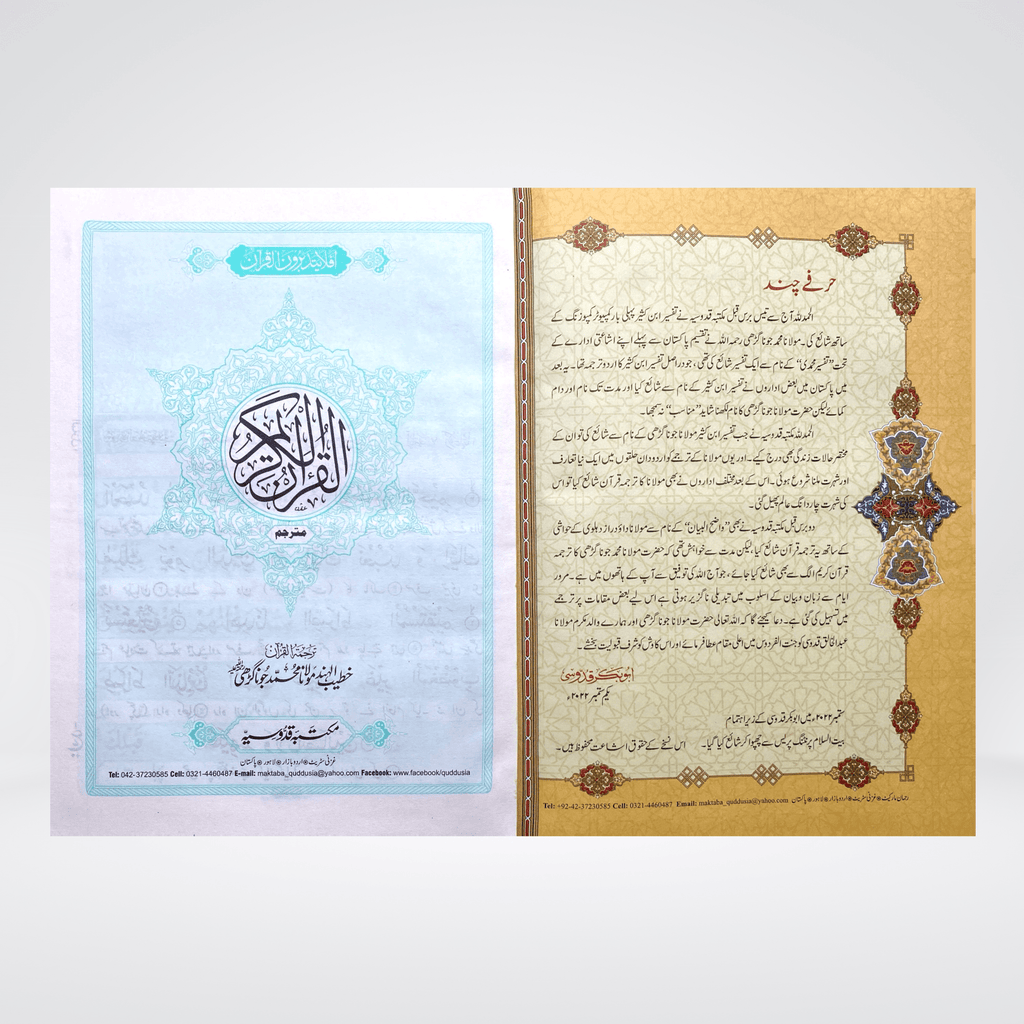 افلا یتدبرون القرآن
القرآن الکریم
مترجم
ترجمۃ القرآن
خطیب الہند مولانا محمد جوناگڑھی رحمہ اللہ
مکتبہ قدوسیہ
غزنی سٹریٹ ❋ اردو بازار ❋ لاہور ❋ پاکستان
Tel: 042-37230585 Cell: 0321-4460487 E-mail: maktaba_quddusia@yahoo.com Facebook: www.facebook/quddusia
حرفے چند
الحمدللہ آج سے تیس برس قبل مکتبہ قدوسیہ نے تفسیر ابن کثیر پہلی بار کمپیوٹر کمپوزنگ کے
ساتھ شائع کی۔ مولانا محمد جونا گڑھی رحمہ اللہ نے تقسیم پاکستان سے پہلے اپنے اشاعتی ادارے کے
تحت ”تفسیر محمدی“ کے نام سے ایک تفسیر شائع کی تھی، جو دراصل تفسیر ابن کثیر کا اردو ترجمہ تھا۔ یہ بعد
میں پاکستان میں بعض اداروں نے تفسیر ابن کثیر کے نام سے شائع کیا اور مدت تک نام اور دام
کمائے لیکن حضرت مولانا جونا گڑھی کا نام لکھنا شاید ”مناسب“ نہ سمجھا۔
الحمدللہ مکتبہ قدوسیہ نے جب تفسیر ابن کثیر مولانا جونا گڑھی کے نام سے شائع کی تو ان کے
مختصر حالات زندگی بھی درج کیے۔ اور یوں مولانا کے ترجمے کو اردو دان حلقوں میں ایک نیا تعارف
اور شہرت ملنا شروع ہوئی۔ اس کے بعد مختلف اداروں نے بھی مولانا کا ترجمہ قرآن شائع کیا تو اس
کی شہرت چار دانگ عالم پھیل گئی۔
دو برس قبل مکتبہ قدوسیہ نے بھی ”واضح البیان“ کے نام سے مولانا داؤد راز دہلوی کے حواشی
کے ساتھ یہ ترجمہ قرآن شائع کیا، لیکن مدت سے خواہش تھی کہ حضرت مولانا محمد جونا گڑھی کا ترجمہ
قرآن کریم الگ سے بھی شائع کیا جائے، جو آج اللہ کی توفیق سے آپ کے ہاتھوں میں ہے۔ مرور
ایام سے زبان و بیان کے اسلوب میں تبدیلی ناگزیر ہوتی ہے اس لیے بعض مقامات پر ترجمے
میں تسہیل کی گئی ہے۔ دعا کیجئے گا کہ اللہ تعالیٰ حضرت مولانا جونا گڑھی اور ہمارے والد مکرم مولانا
عبدالخالق قدوسی کو جنت الفردوس میں اعلیٰ مقام عطا فرمائے اور اس کاوش کو شرف قبولیت بخشے۔
ابوبکر قدوسی
یکم ستمبر ۲۰۲۲ء
ستمبر ۲۰۲۲ء میں ابوبکر قدوسی کے زیر اہتمام
بیت السلام پرنٹنگ پریس سے چھپوا کر شائع کیا گیا۔ اس نسخے کے حقوق اشاعت محفوظ ہیں۔
رحمان مارکیٹ ❋ غزنی سٹریٹ ❋ اردو بازار ❋ لاہور ❋ پاکستان Tel: +92-42-37230585 Cell: 0321-4460487 Email: maktaba_quddusia@yahoo.com